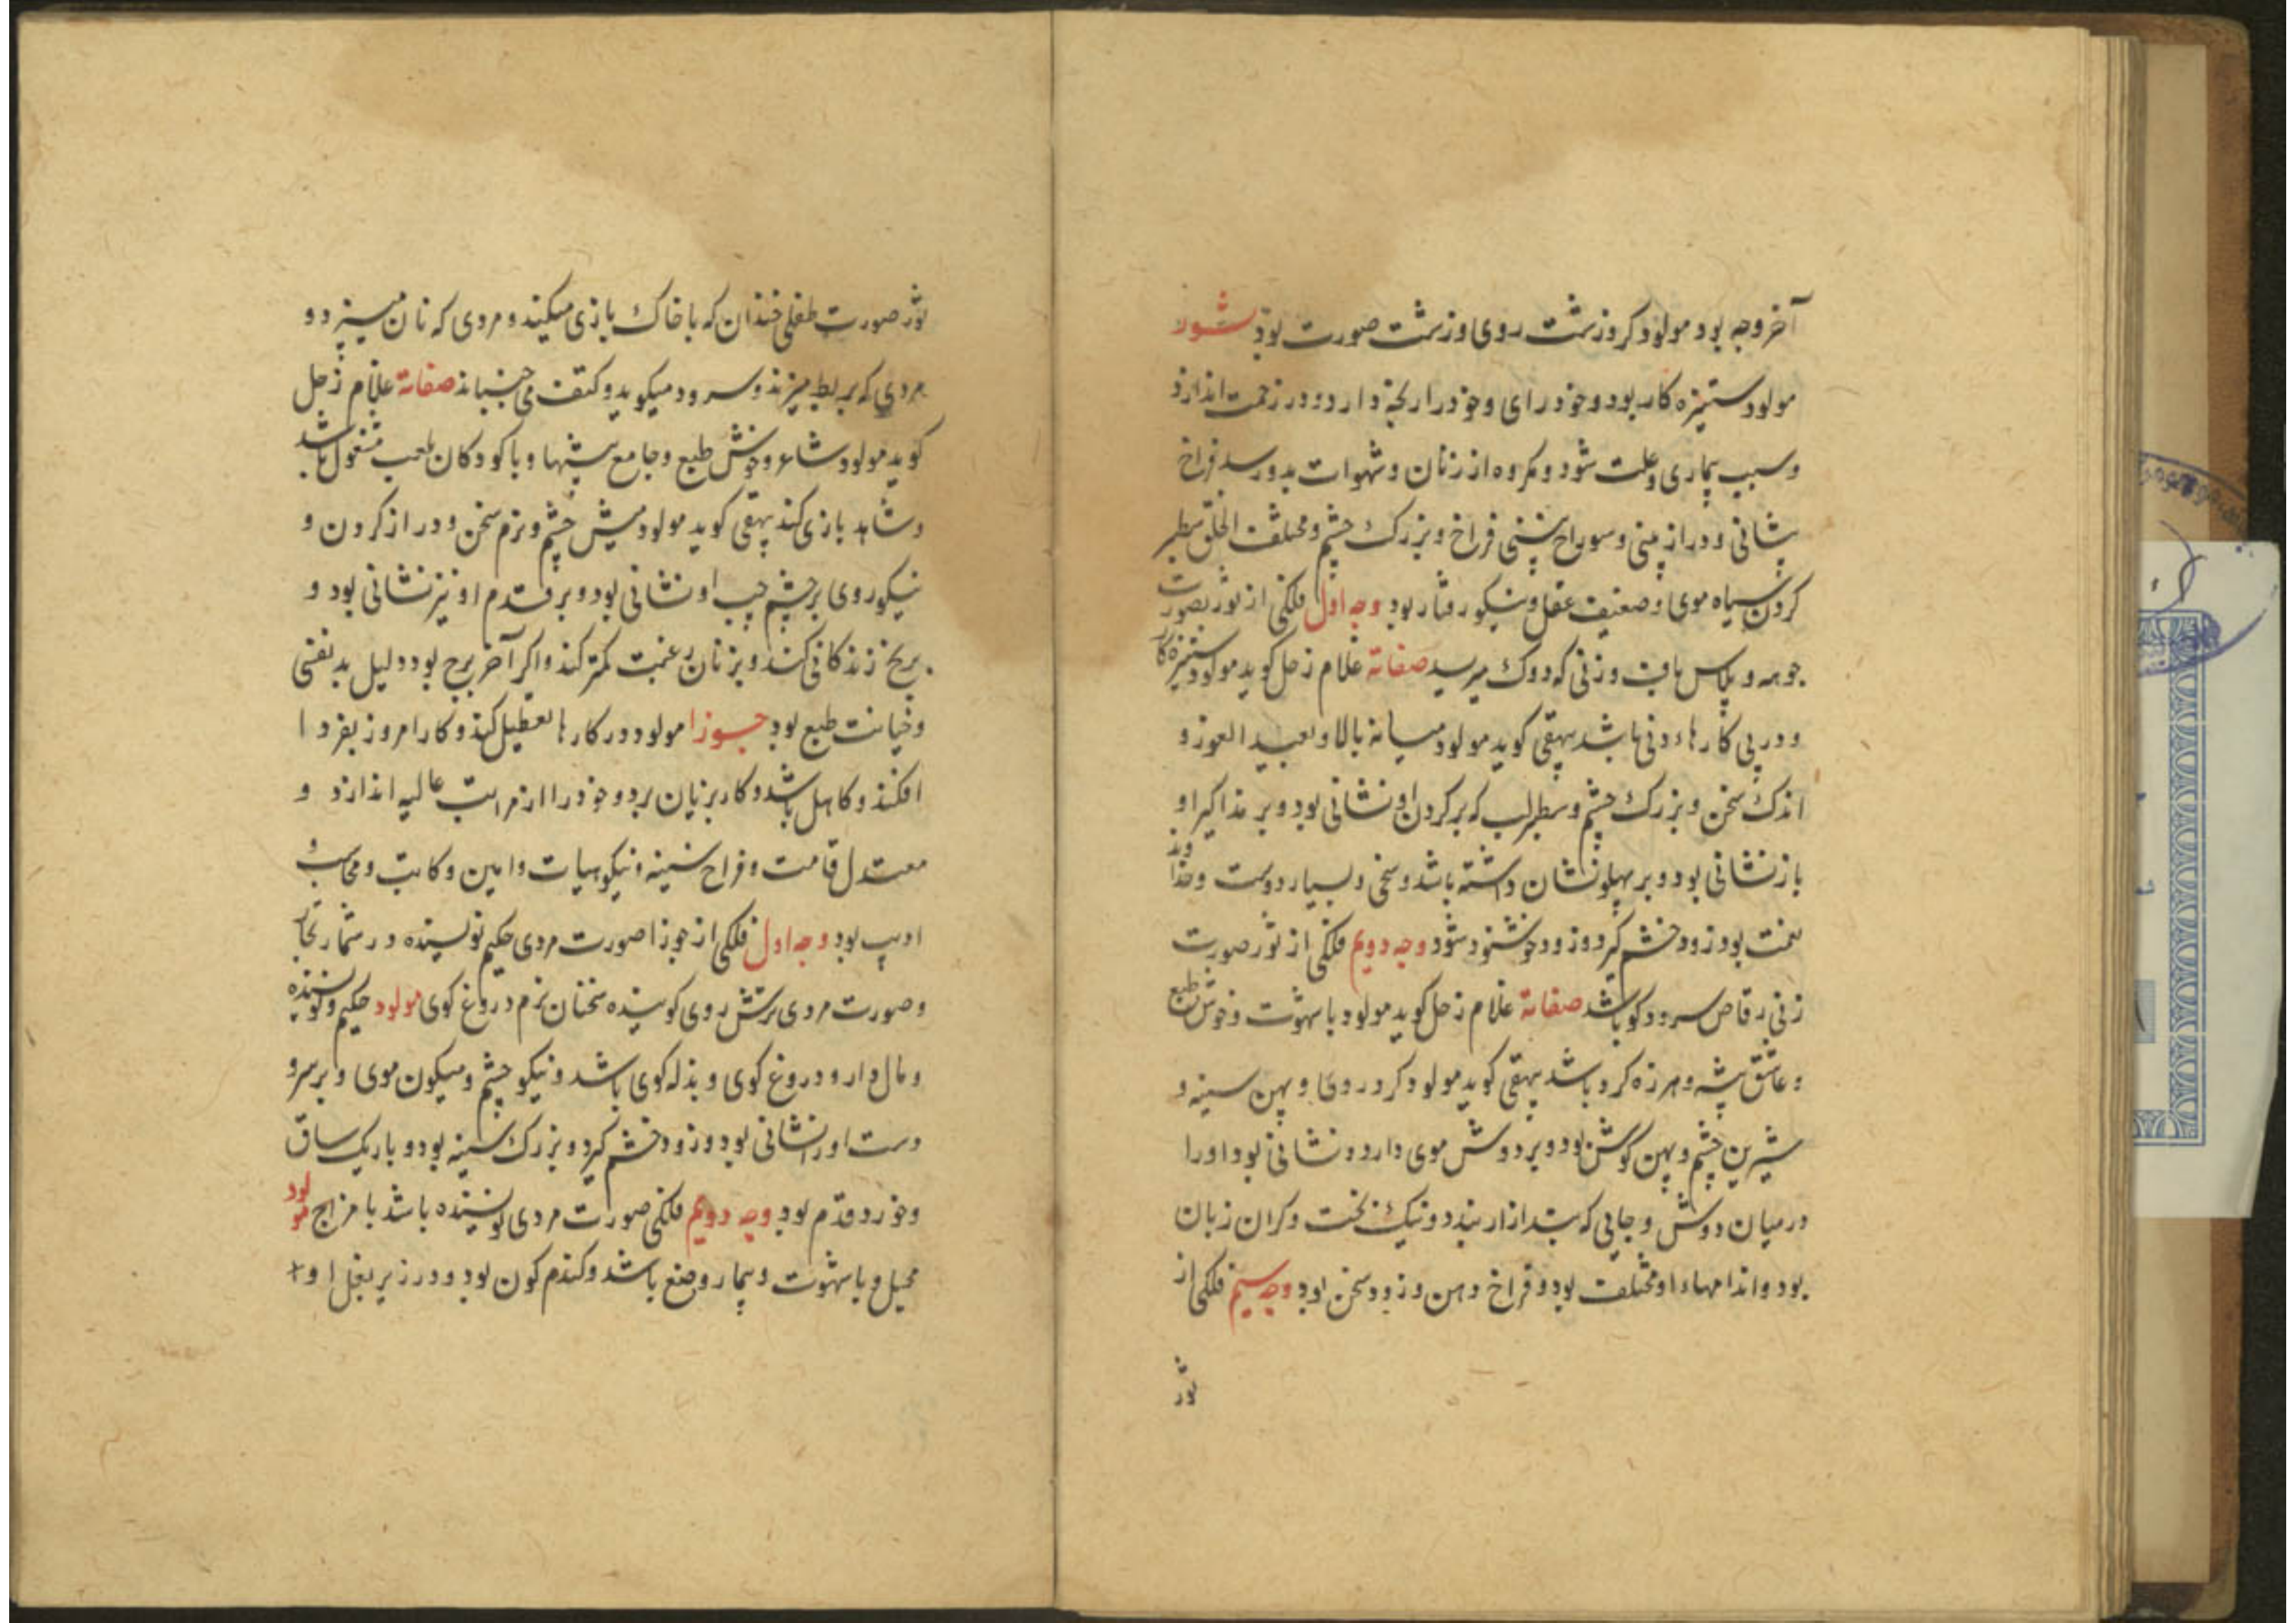 آخر وجه بود مولود کر و زشت روی و زشت صورت بود ثور
مولود ستیزه کار بود و خود رای و خود را رنجه دارد و در زحمت اندازد
و سبب بیماری و علت شود و مکروه از زنان و شهوات بدو رسد فراخ
پشانی و دراز بینی و سوراخ بینی فراخ و بزرک چشم و مختلف الخلق سطبر
کردن سیاه موی و ضعیف عقل و نیکو رفتار بود وجه اول فلکی از ثور بصورت
و پلاس باف و زنی که دوک میریسد صفاته غلام زحل کوید مولود ستیزه کار
و در پی کارهاء دنی باشد بیهقی کوید مولود میانه بالا و بعید الغور و
اندک سخن و بزرک چشم و سطبر لب که بر کردن او نشانی بود و بر مذاکیر او
باز نشانی بود و بر پهلو نشان داشته باشد و سخی و بسیار دوست و خداوند
نعمت بود زود خشم کیرد و زود خوشنود شود وجه دویم فلکی از ثور صورت
زنی رقاص سرود کو باشد صفاته غلام زحل کوید مولود با شهوت و خوش طبع
و عاشق پیشه و هرزه کرد باشد بیهقی کوید مولود کرد روی و پهن سینه و
شیرین چشم و پهن کوش بود و بر دوش موی دارد و نشانی بود او را
در میان دوش و جایی که بند ازار بندد و نیک بخت و کران زبان
بود و اندامهاء او مختلف بود و فراخ دهن و زود سخن بود وجه سیم فلکی از
ثور
ثور صورت طفلی خندان که با خاک بازی میکند و مردی که نان میپزد و
مردی که بربط میزند و سرود میکوید و کتف می جنباند صفاته غلام زحل
کوید مولود شاعر و خوش طبع و جامع پیشها و با کودکان بلعب مشغول باشد
و شاهد بازی کند بیهقی کوید مولود میش چشم و نرم سخن و دراز کردن و
نیکو روی بر چشم چپ او نشانی بود و بر قدم او نیز نشانی بود و
برنج زندکانی کند و بزنان رغبت کمتر کند و اکر آخر برج بود دلیل بد نفسی
و خیانت طبع بود جوزا مولود در کارها تعطیل کند و کار امروز بفردا
افکند و کاهل باشد و کار بزیان برد و خود را از مراتب عالیه اندازد و
معتدل قامت و فراخ سینه و نیکو هیات و امین و کاتب و محاسب
ادیب بود وجه اول فلکی از جوزا صورت مردی حکیم نویسنده در شمار تجار
و صورت مردی ترش روی کوینده سخنان نرم دروغ کوی مولود حکیم و نویسنده
و مال دار و دروغ کوی و بذله کوی باشد و نیکو چشم و میکون موی و بر سر و
دست او را نشانی بود و زود خشم کیرد و بزرک سینه بود و باریک ساق
و خورد قدم بود وجه دویم فلکی صورت مردی نویسنده باشد با مزاج مولود
محیل و با شهوت و بیمار وضع باشد و کندم کون بود و در زیر بغل او